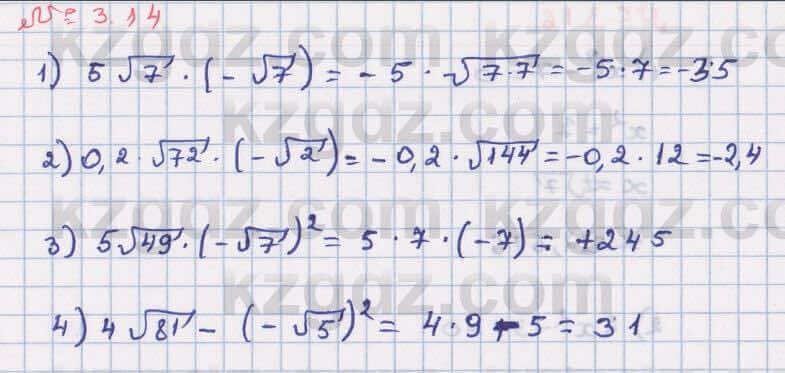 № 3.14
1) 5√7 · (-√7) = -5 · √7·7 = -5·7 = -35
2) 0,2 · √72 · (-√2) = -0,2 · √144 = -0,2 · 12 = -2,4
3) 5√49 · (-√7)² = 5 · 7 · (-7) = +245
4) 4√81 - (-√5)² = 4·9 - 5 = 31
kzgdz.com kzgdz.com
kzgdz.com
kzgdz.com kzgdz.com
kzgdz.com